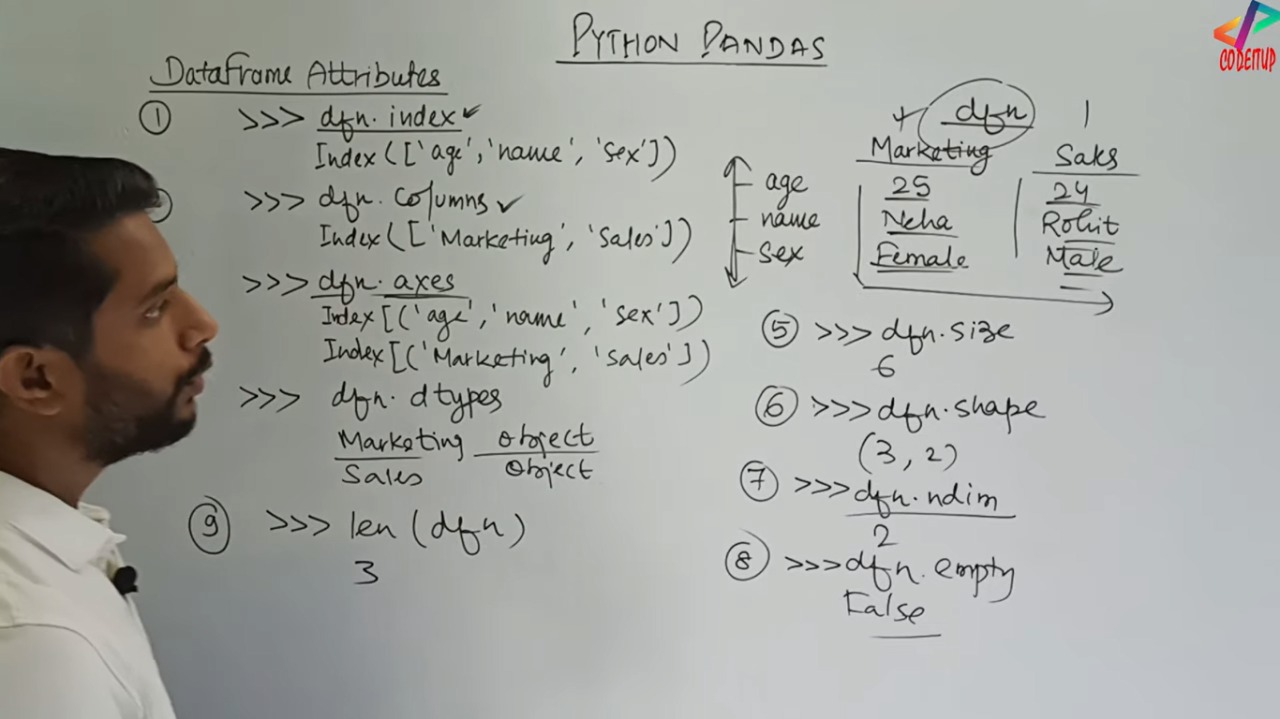 PYTHON PANDAS
CODEITUP
DataFrame Attributes
① >>> dfn.index ✓
Index(['age','name','sex'])
>>> dfn.columns ✓
Index(['Marketing','Sales'])
>>> dfn.axes
Index[('age','name','sex'])
Index[('Marketing','Sales'])
>>> dfn.dtypes
Marketing object
Sales object
⑨ >>> len(dfn)
3
dfn
Marketing Sales
age 25 24
name Neha Rohit
sex Female Male
⑤ >>> dfn.size
6
⑥ >>> dfn.shape
(3, 2)
⑦ >>> dfn.ndim
2
⑧ >>> dfn.empty
False